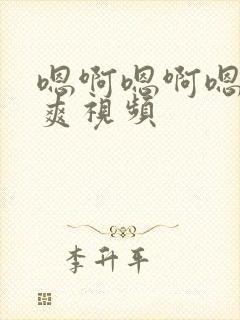 嗯啊嗯啊嗯
爽視頻
李升平